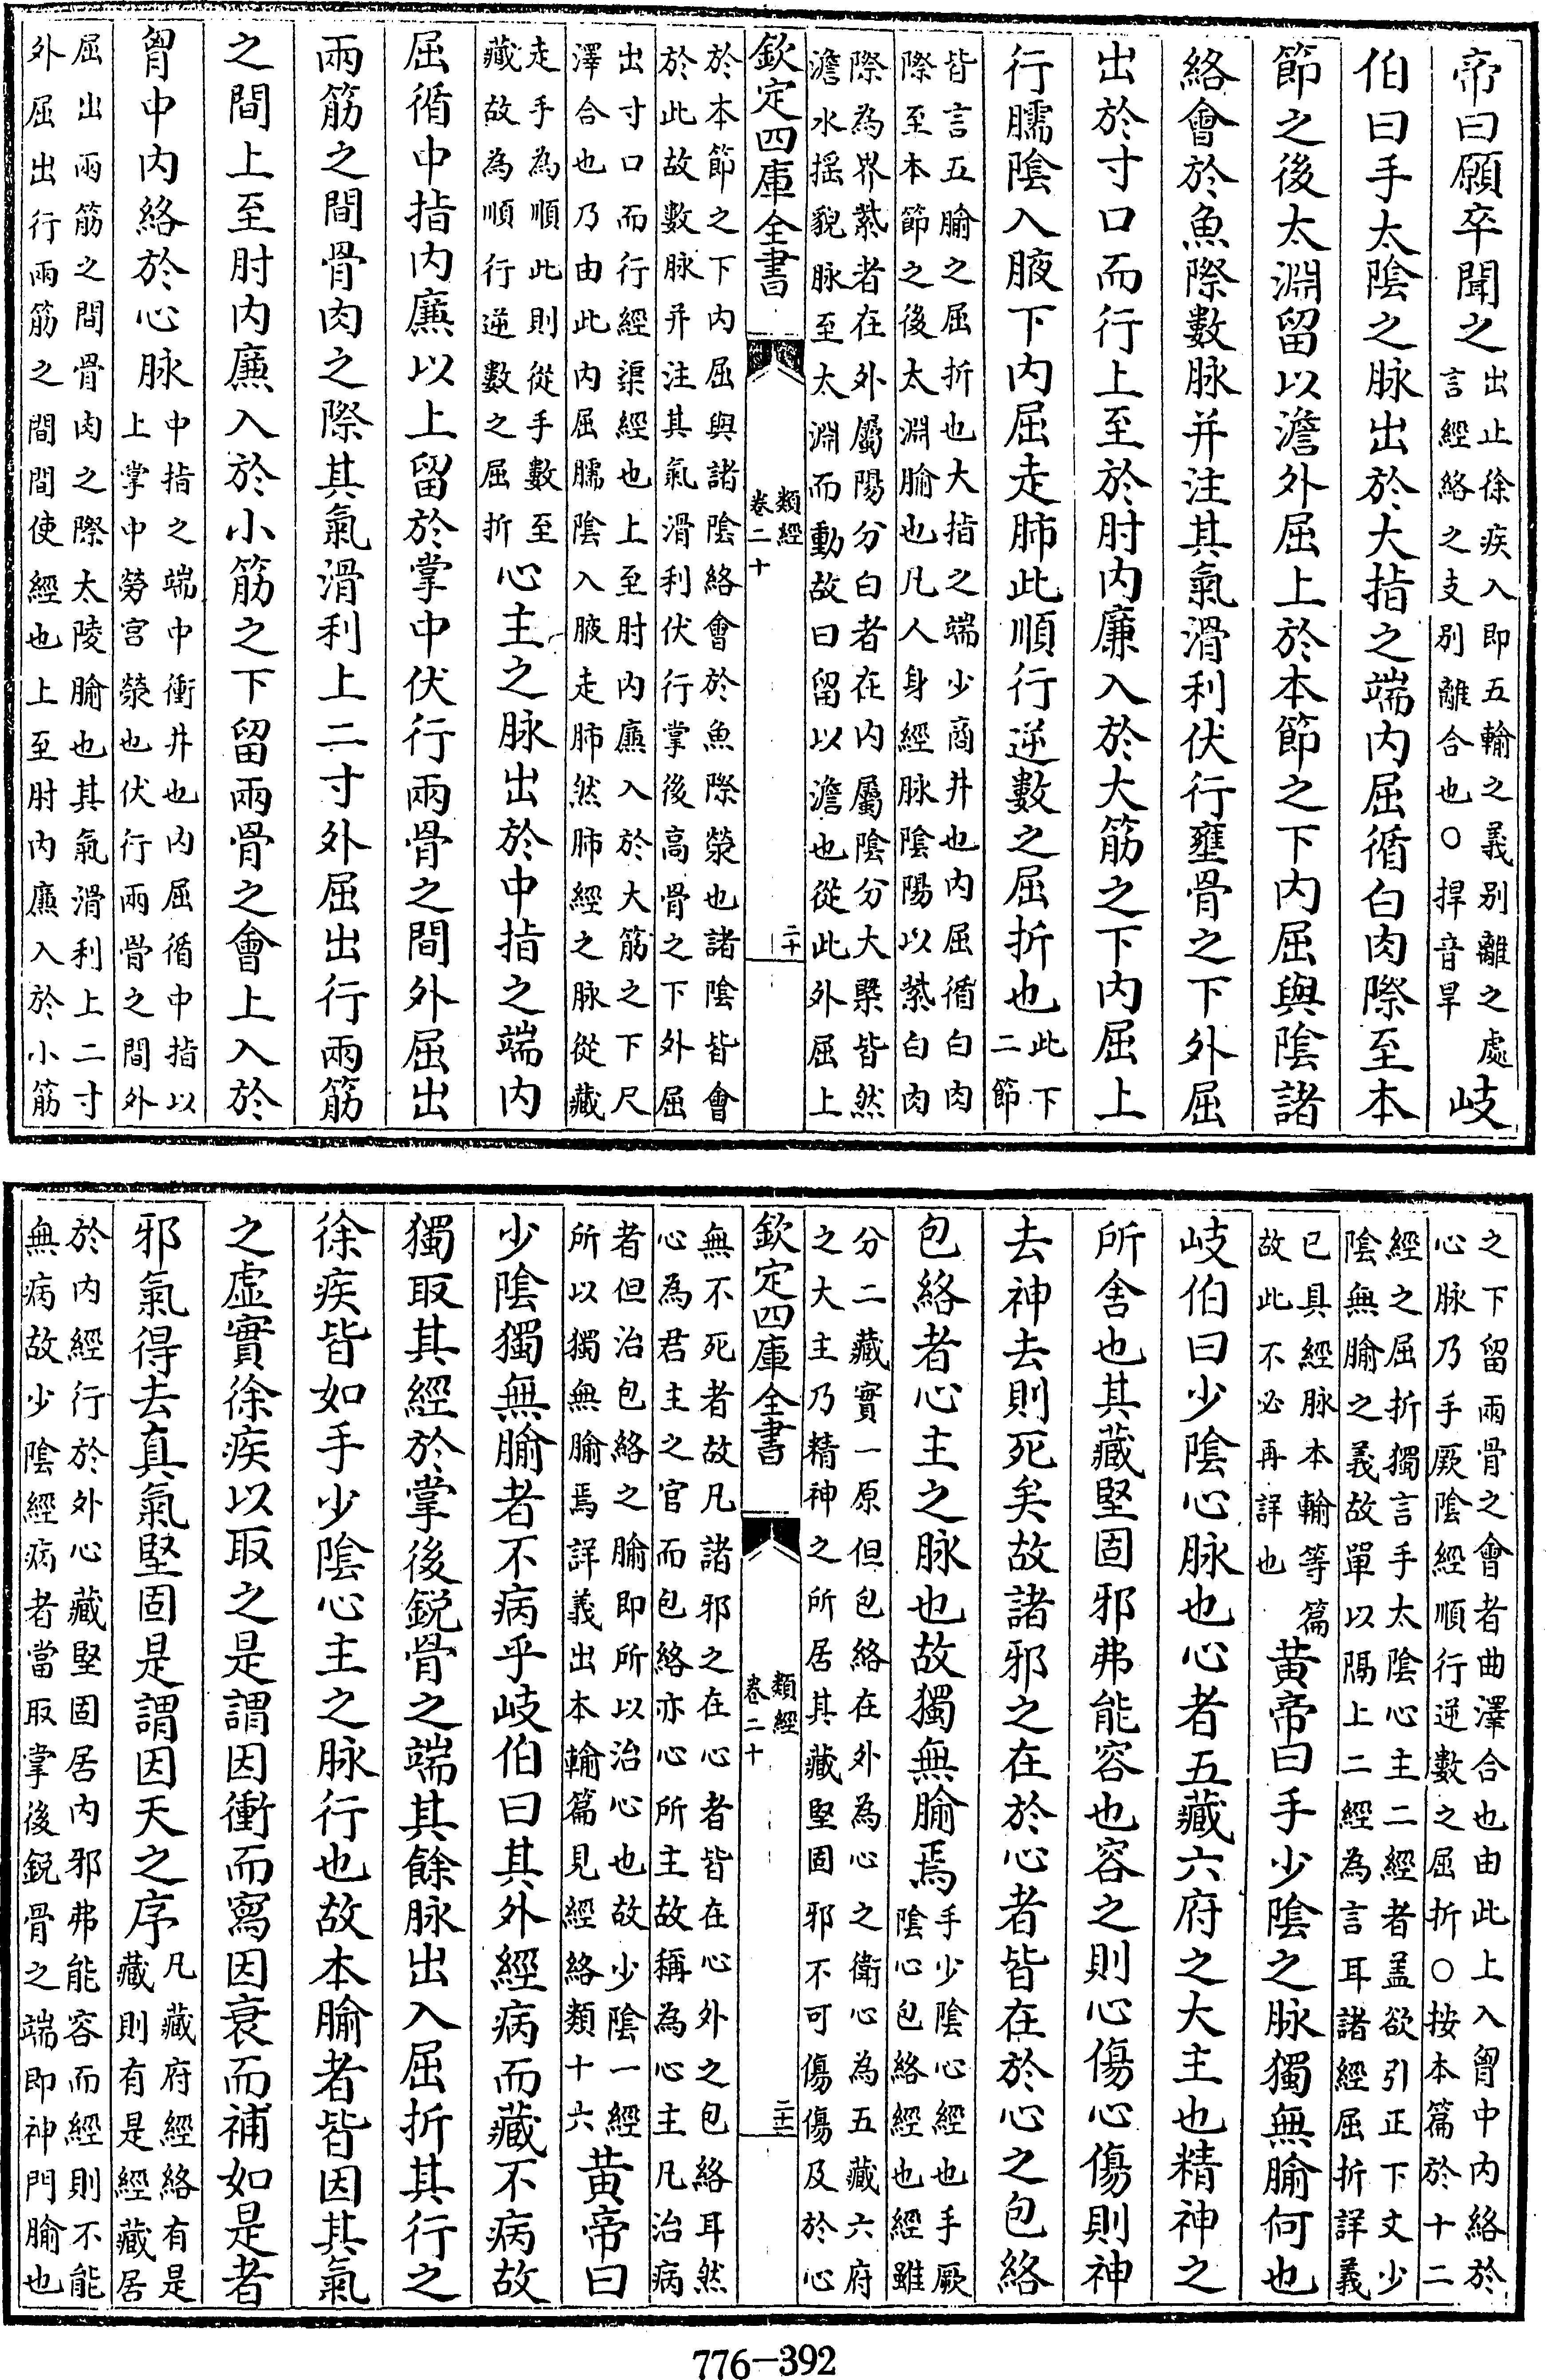 帝曰願卒聞之出止徐疾入即五輸之義別離之處言經絡之支別離合也○捍音旱岐
伯曰手太陰之脉出於大指之端內屈循白肉際至本
節之後太淵留以澹外屈上於本節之下內屈與陰諸
絡會於魚際數脉并注其氣滑利伏行壅骨之下外屈
出於寸口而行上至於肘內廉入於大筋之下內屈上
行臑陰入腋下內屈走肺此順行逆數之屈折也此下二節
皆言五腧之屈折也大指之端少商井也內屈循白肉
際至本節之後太淵腧也凡人身經脉陰陽以紫白肉
際為界紫者在外屬陽分白者在內屬陰分大槩皆然
澹水摇貌脉至太淵而動故曰留以澹也從此外屈上
欽定四庫全書
類經
卷二十
二十
於本節之下內屈與諸陰絡會於魚際滎也諸陰皆會
於此故數脉并注其氣滑利伏行掌後高骨之下外屈
出寸口而行經渠經也上至肘內廉入於大筋之下尺
澤合也乃由此內屈臑陰入腋走肺然肺經之脉從藏
走手為順此則從手數至
藏故為順行逆數之屈折心主之脉出於中指之端內
屈循中指內廉以上留於掌中伏行兩骨之間外屈出
兩筋之間骨肉之際其氣滑利上二寸外屈出行兩筋
之間上至肘內廉入於小筋之下留兩骨之會上入於
胷中內絡於心脉中指之端中衝井也內屈循中指以上掌中勞宮滎也伏行兩骨之間外
屈出兩筋之間骨肉之際太陵腧也其氣滑利上二寸
外屈出行兩筋之間間使經也上至肘內廉入於小筋
之下留兩骨之會者曲澤合也由此上入胷中內絡於
心脉乃手厥陰經順行逆數之屈折○按本篇於十二
經之屈折獨言手太陰心主二經者盖欲引正下文少
陰無腧之義故單以陽上二經為言耳諸經屈折詳義
已具經脉本輸等篇
故此不必再詳也黃帝曰手少陰之脉獨無腧何也
岐伯曰少陰心脉也心者五藏六府之大主也精神之
所舍也其藏堅固邪弗能容也容之則心傷心傷則神
去神去則死矣故諸邪之在於心者皆在於心之包絡
包絡者心主之脉也故獨無腧焉手少陰心經也手厥陰心包絡經也經雖
分二藏實一原但包絡在外為心之衛心為五藏六府
之大主乃精神之所居其藏堅固邪不可傷傷及於心
欽定四庫全書
類經
卷二十
二十一
無不死者故凡諸邪之在心者皆在心外之包絡耳然
心為君主之官而包絡亦心所主故稱為心主凡治病
者但治包絡之腧即所以治心也故少陰一經
所以獨無腧焉詳義出本輸篇見經絡類十六黃帝曰
少陰獨無腧者不病乎岐伯曰其外經病而藏不病故
獨取其經於掌後銳骨之端其餘脉出入屈折其行之
徐疾皆如手少陰心主之脉行也故本腧者皆因其氣
之虛實徐疾以取之是謂因衝而寫因衰而補如是者
邪氣得去真氣堅固是謂因天之序凡藏府經絡有是藏則有是經藏居
於內經行於外心藏堅固居內邪弗能容而經則不能
無病故少陰經病者當取掌後銳骨之端即神門腧也
776-392